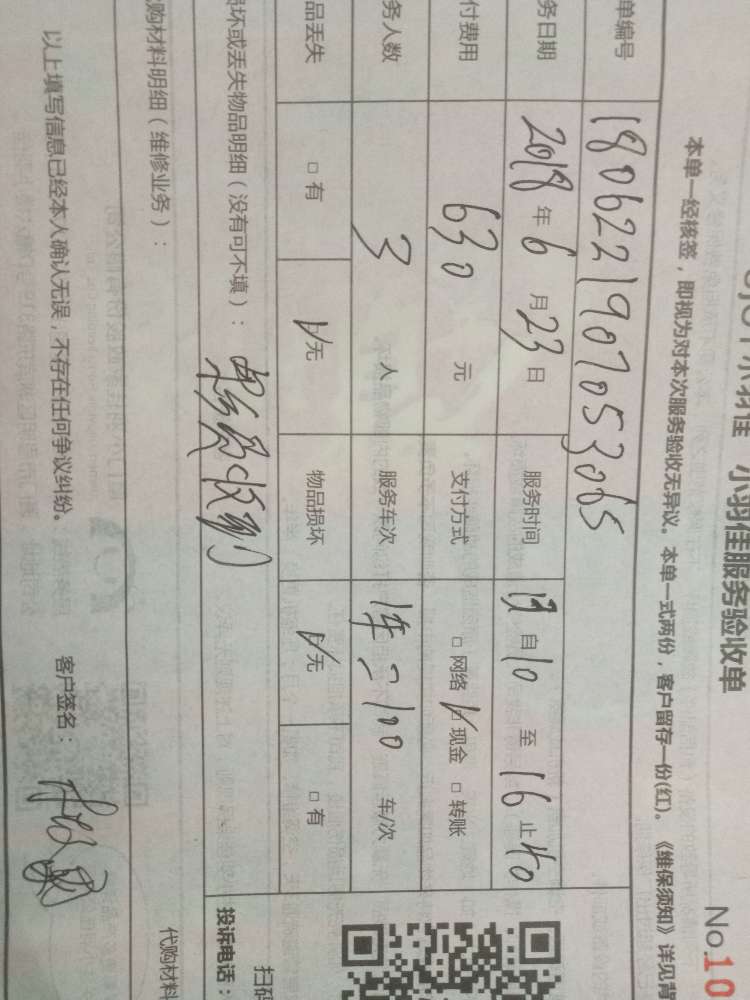 小羽佳 小羽佳服务验收单
No.10
本单一经核签，即视为对本次服务验收无异议。本单一式两份，客户留存一份(红)。《维保须知》详见背
单编号 1806221907053065
务日期 2018年6月23日 服务时间 自10 至16止40
付费用 630 元 支付方式 □网络 ☑现金 □转账
务人数 3 人 服务车次 车/次
品丢失 □有 ☑无 物品损坏 ☑无 □有
损坏或丢失物品明细（没有可不填）：
投诉电话：
扫码
代购材料明细（维修业务）：
代购材料
以上填写信息已经本人确认无误，不存在任何争议纠纷。 客户签名：